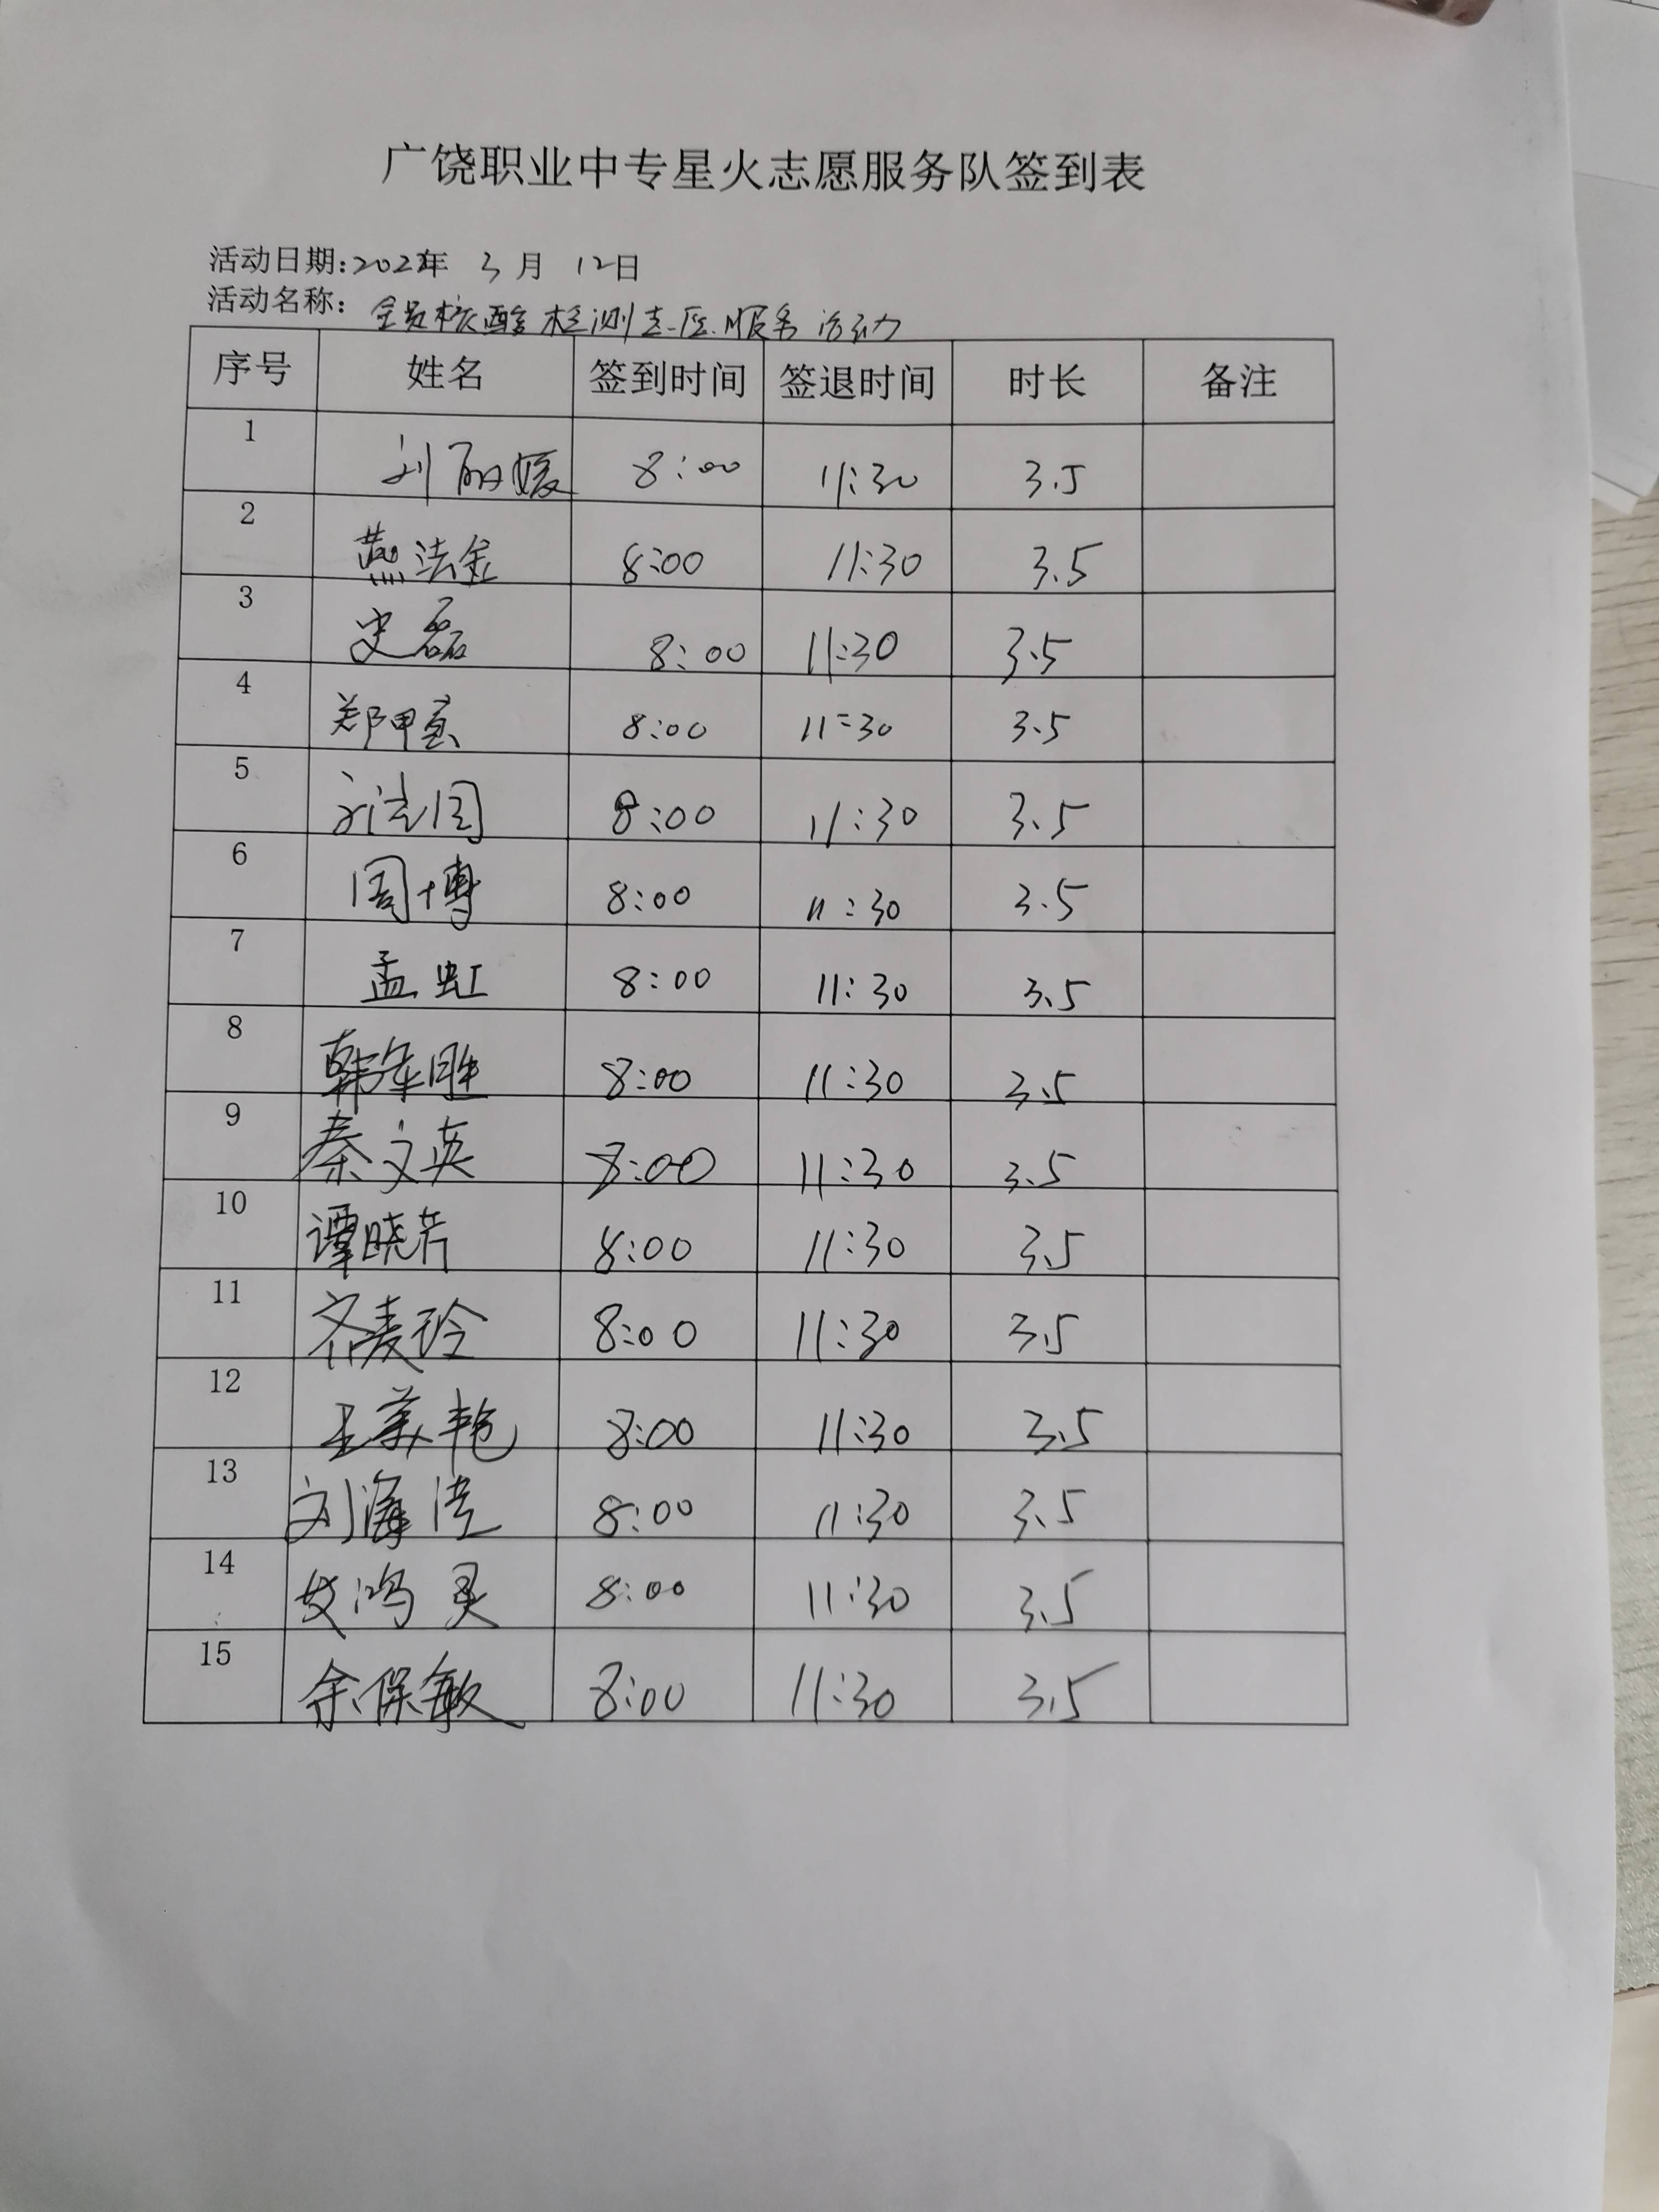 广饶职业中专星火志愿服务队签到表
活动日期:2022年 3月 12日
活动名称: 全员核酸检测志愿服务活动
序号 姓名 签到时间 签退时间 时长 备注
1 刘丽媛 8:00 11:30 3.5
2 燕法金 8:00 11:30 3.5
3 史磊 8:00 11:30 3.5
4 8:00 11:30 3.5
5 8:00 11:30 3.5
6 周博 8:00 11:30 3.5
7 孟虹 8:00 11:30 3.5
8 韩年胜 8:00 11:30 3.5
9 秦文英 8:00 11:30 3.5
10 谭晓芹 8:00 11:30 3.5
11 齐麦玲 8:00 11:30 3.5
12 王美艳 8:00 11:30 3.5
13 8:00 11:30 3.5
14 8:00 11:30 3.5
15 余保敏 8:00 11:30 3.5